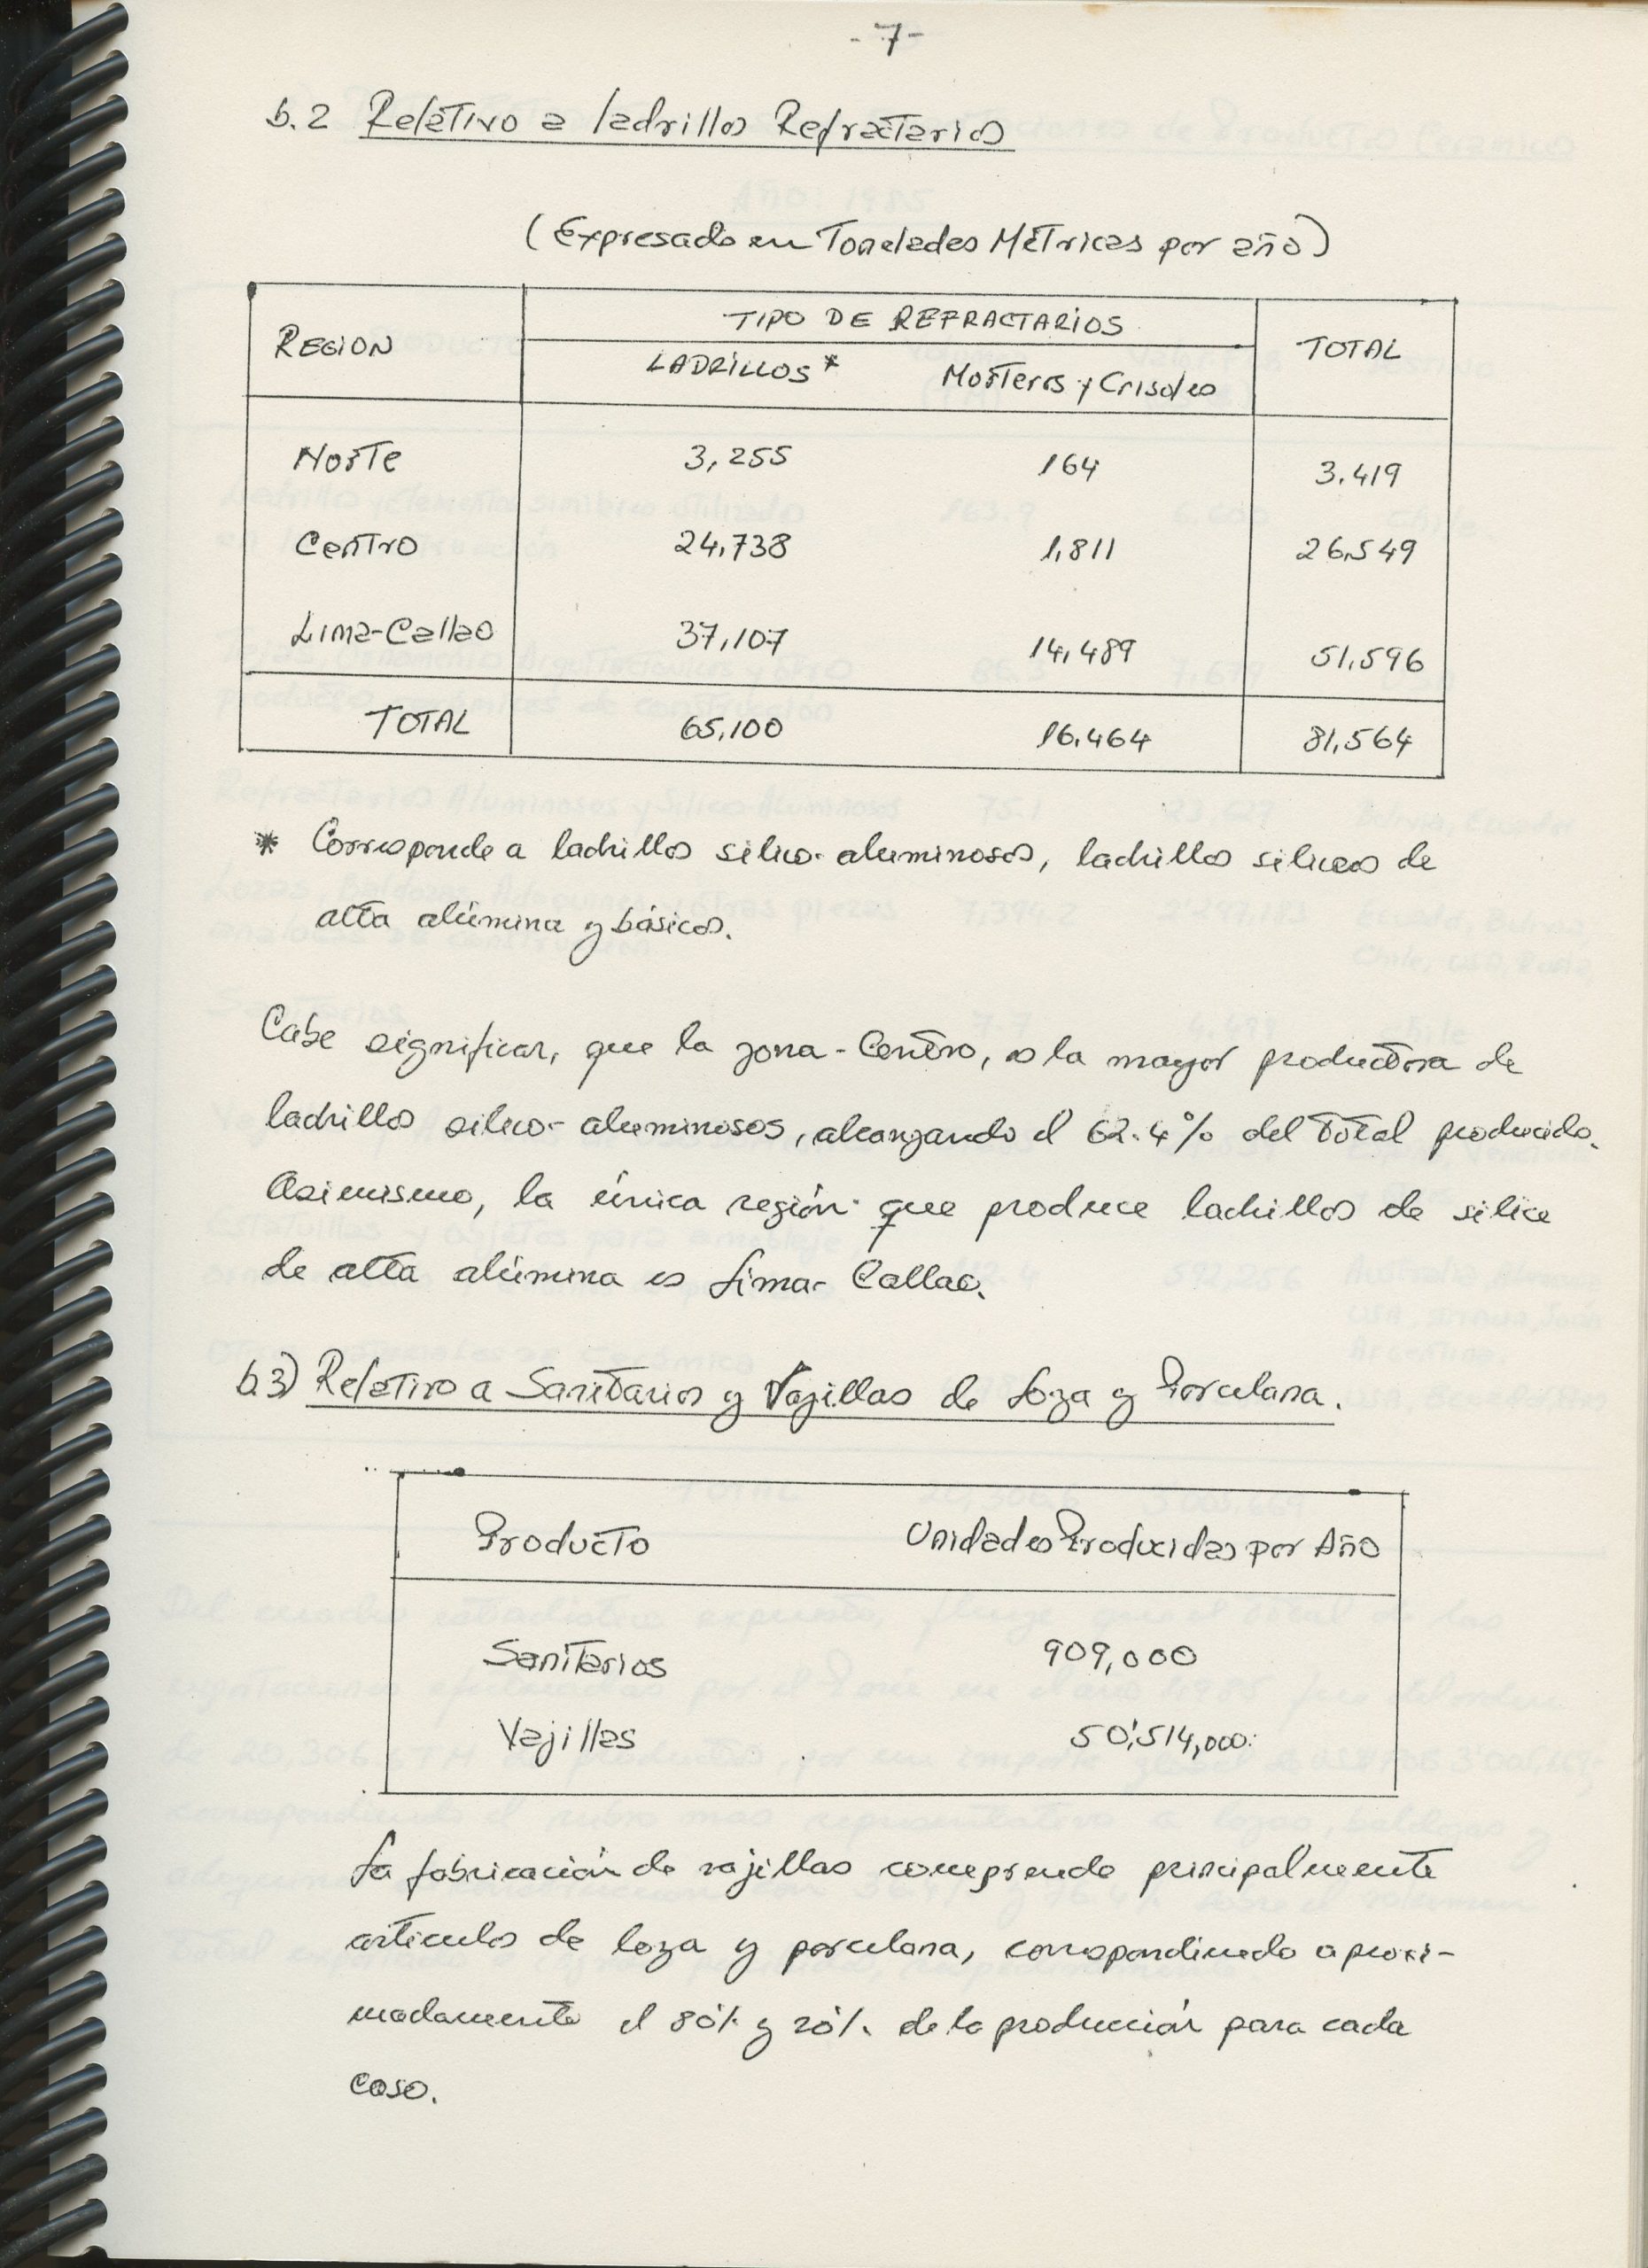 -7-
b.2 Relativo a ladrillos Refractarios
(Expresado en Toneladas Métricas por año)
REGION TIPO DE REFRACTARIOS TOTAL
LADRILLOS* Morteros y Crisoles
Norte 3,255 164 3.419
Centro 24,738 1,811 26,549
Lima-Callao 37,107 14,489 51,596
TOTAL 65,100 16,464 81,564
* Corresponde a ladrillos sílico-aluminosos, ladrillos siliceos de
alta alúmina y básicos.
Cabe significar, que la zona-Centro, es la mayor productora de
ladrillos silico-aluminosos, alcanzando el 62.4% del total producido.
Asimismo, la única región que produce ladrillos de silice
de alta alúmina es Lima-Callao.
b.3) Relativo a Sanitarios y Vajillas de Loza y Porcelana.
Producto Unidades Producidas por Año
Sanitarios 909,000
Vajillas 50',514,000.
La fabricación de vajillas comprende principalmente
artículos de loza y porcelana, correspondiendo aproxi-
madamente el 80% y 20% de la producción para cada
caso.